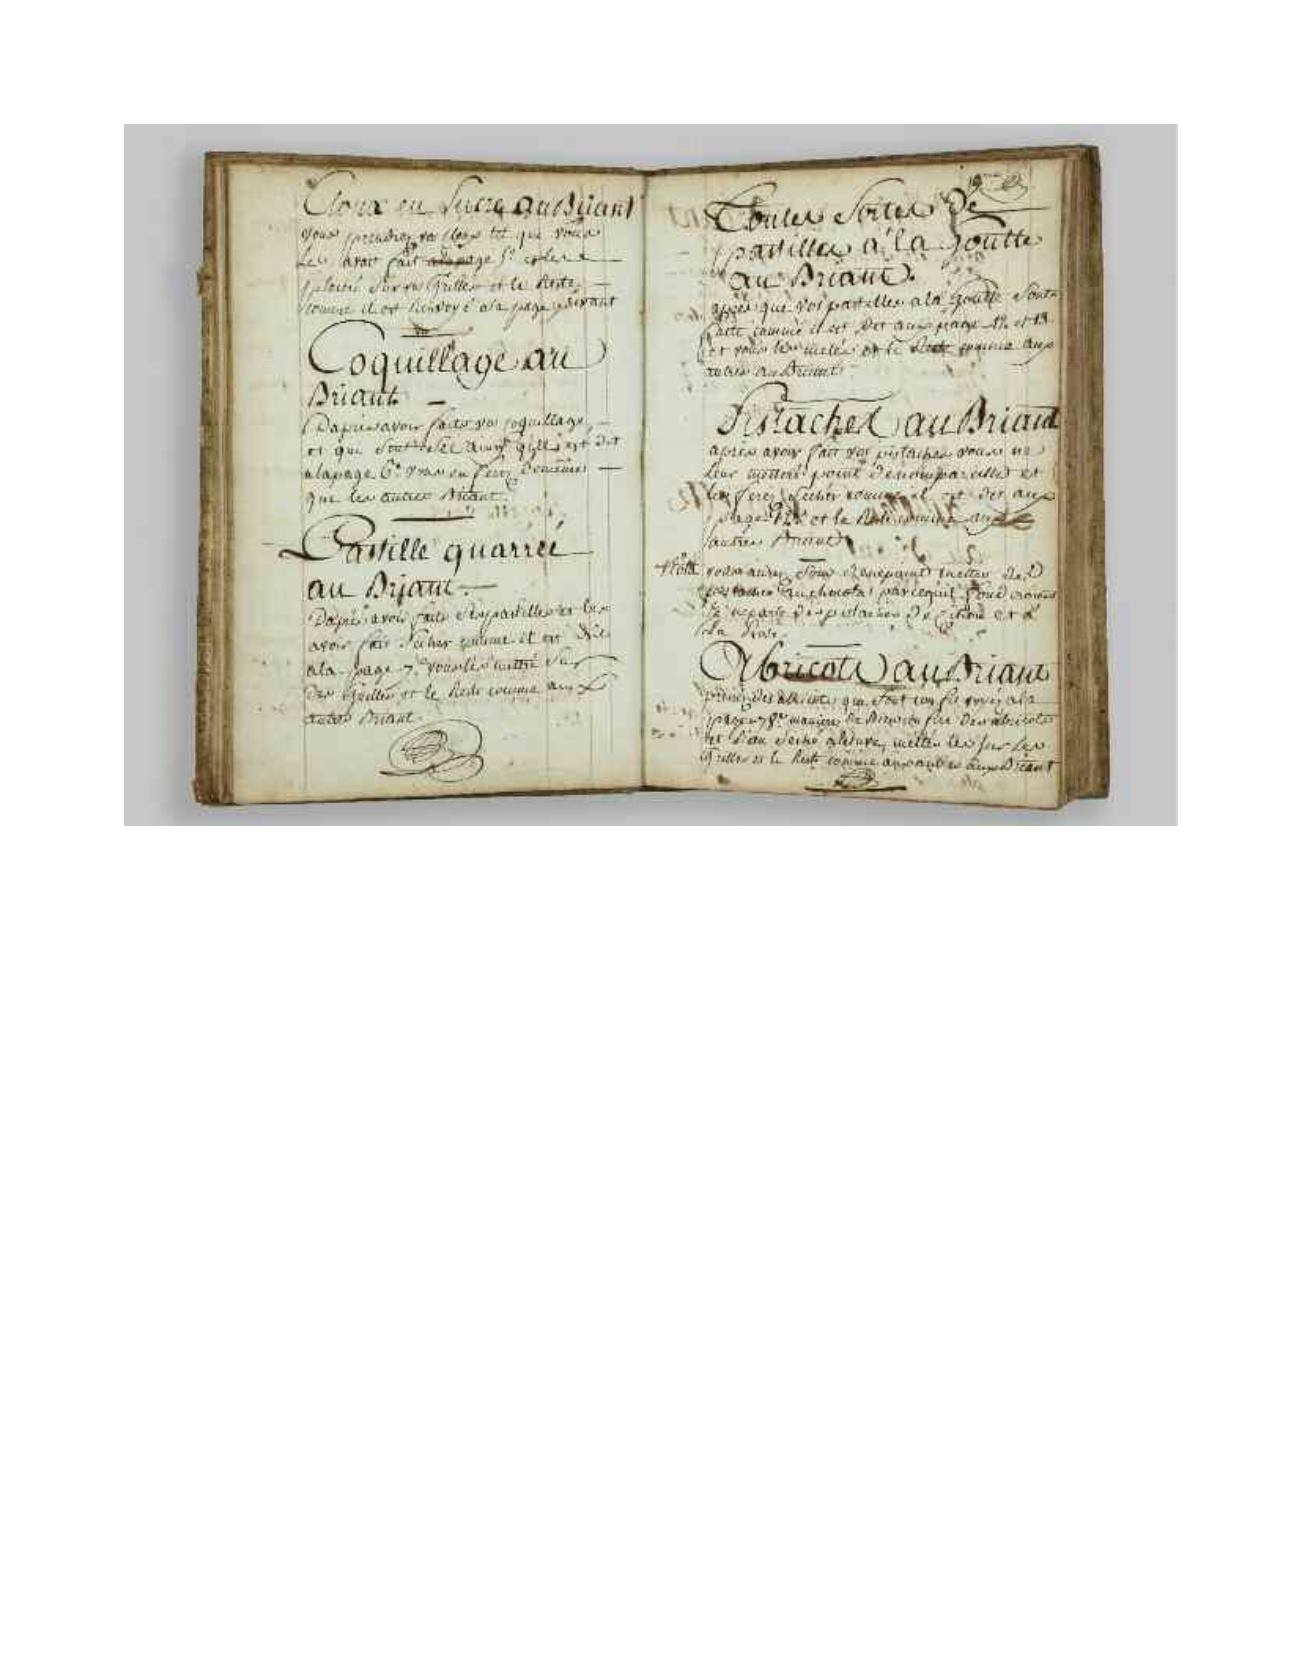 Cloux en Sucre au Briant
vous prendrez vos cloux tel que vous
les avoir fait page 5e
sur vos Grilles et le Reste
comme il est Renvoyé a la page suivant
Coquillage au
Briant
D'après avoir faits vos coquillage,
et que sont sec ainsy qu'il est dit
a la page 6e vous en ferez
que les autres Briant.
Pastille quarréé
au Briant.
D'après avoir faits vos pastilles et les
avoir fait secher comme il est dit
a la page 7e vous les mettre sur
Des Grilles et le Reste comme aux
autres Briant.
19
Toutes Sortes De
pastilles a la Goutte
au Briant.
après que vos pastilles a la Goutte sont
faitte comme il est Dit aux page 12 et 13
et vous les et le Reste comme aux
autres au Briant.
Pistaches au Briant
après avoir fait vos pistaches vous ne
leur mettres point de nompareille et
les ferez secher comme il est Dit aux
page 12e et le Reste comme aux
autres Briant
Nota
pistaches De et a
la Rose.
Abricots au Briant
prenez des abricots qui sont confit voyez a la
page 78e maniere De Des abricots
et metter les sur Les
Grilles et le Reste comme aux autres aux Briant